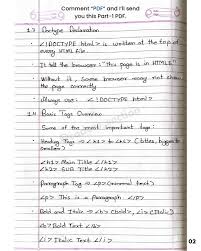 Comment "PDF" and I'll send
you this Part-1 PDF.
1.3 Doctype Declaration
<!DOCTYPE html> is written at the top of
every HTML file.
It tell the browser: "this page is in HTML5"
Without it, some browser may not show
the page correctly
Always use: <!DOCTYPE html>
1.4 Basic Tags Overview
Some of the most important tags:
Heading Tags → <h1> to <h6> (biggest to
smallest)
<h1> Main Title </h1>
<h2> SUB Title </h2>
Paragraph Tag → <p> (normal text)
<p> This is a Paragraph </p>
Bold and Italic → <b> (Bold), <i> (Italic)
<b> Bold Text </b>
<i> Italic Text </i>
02